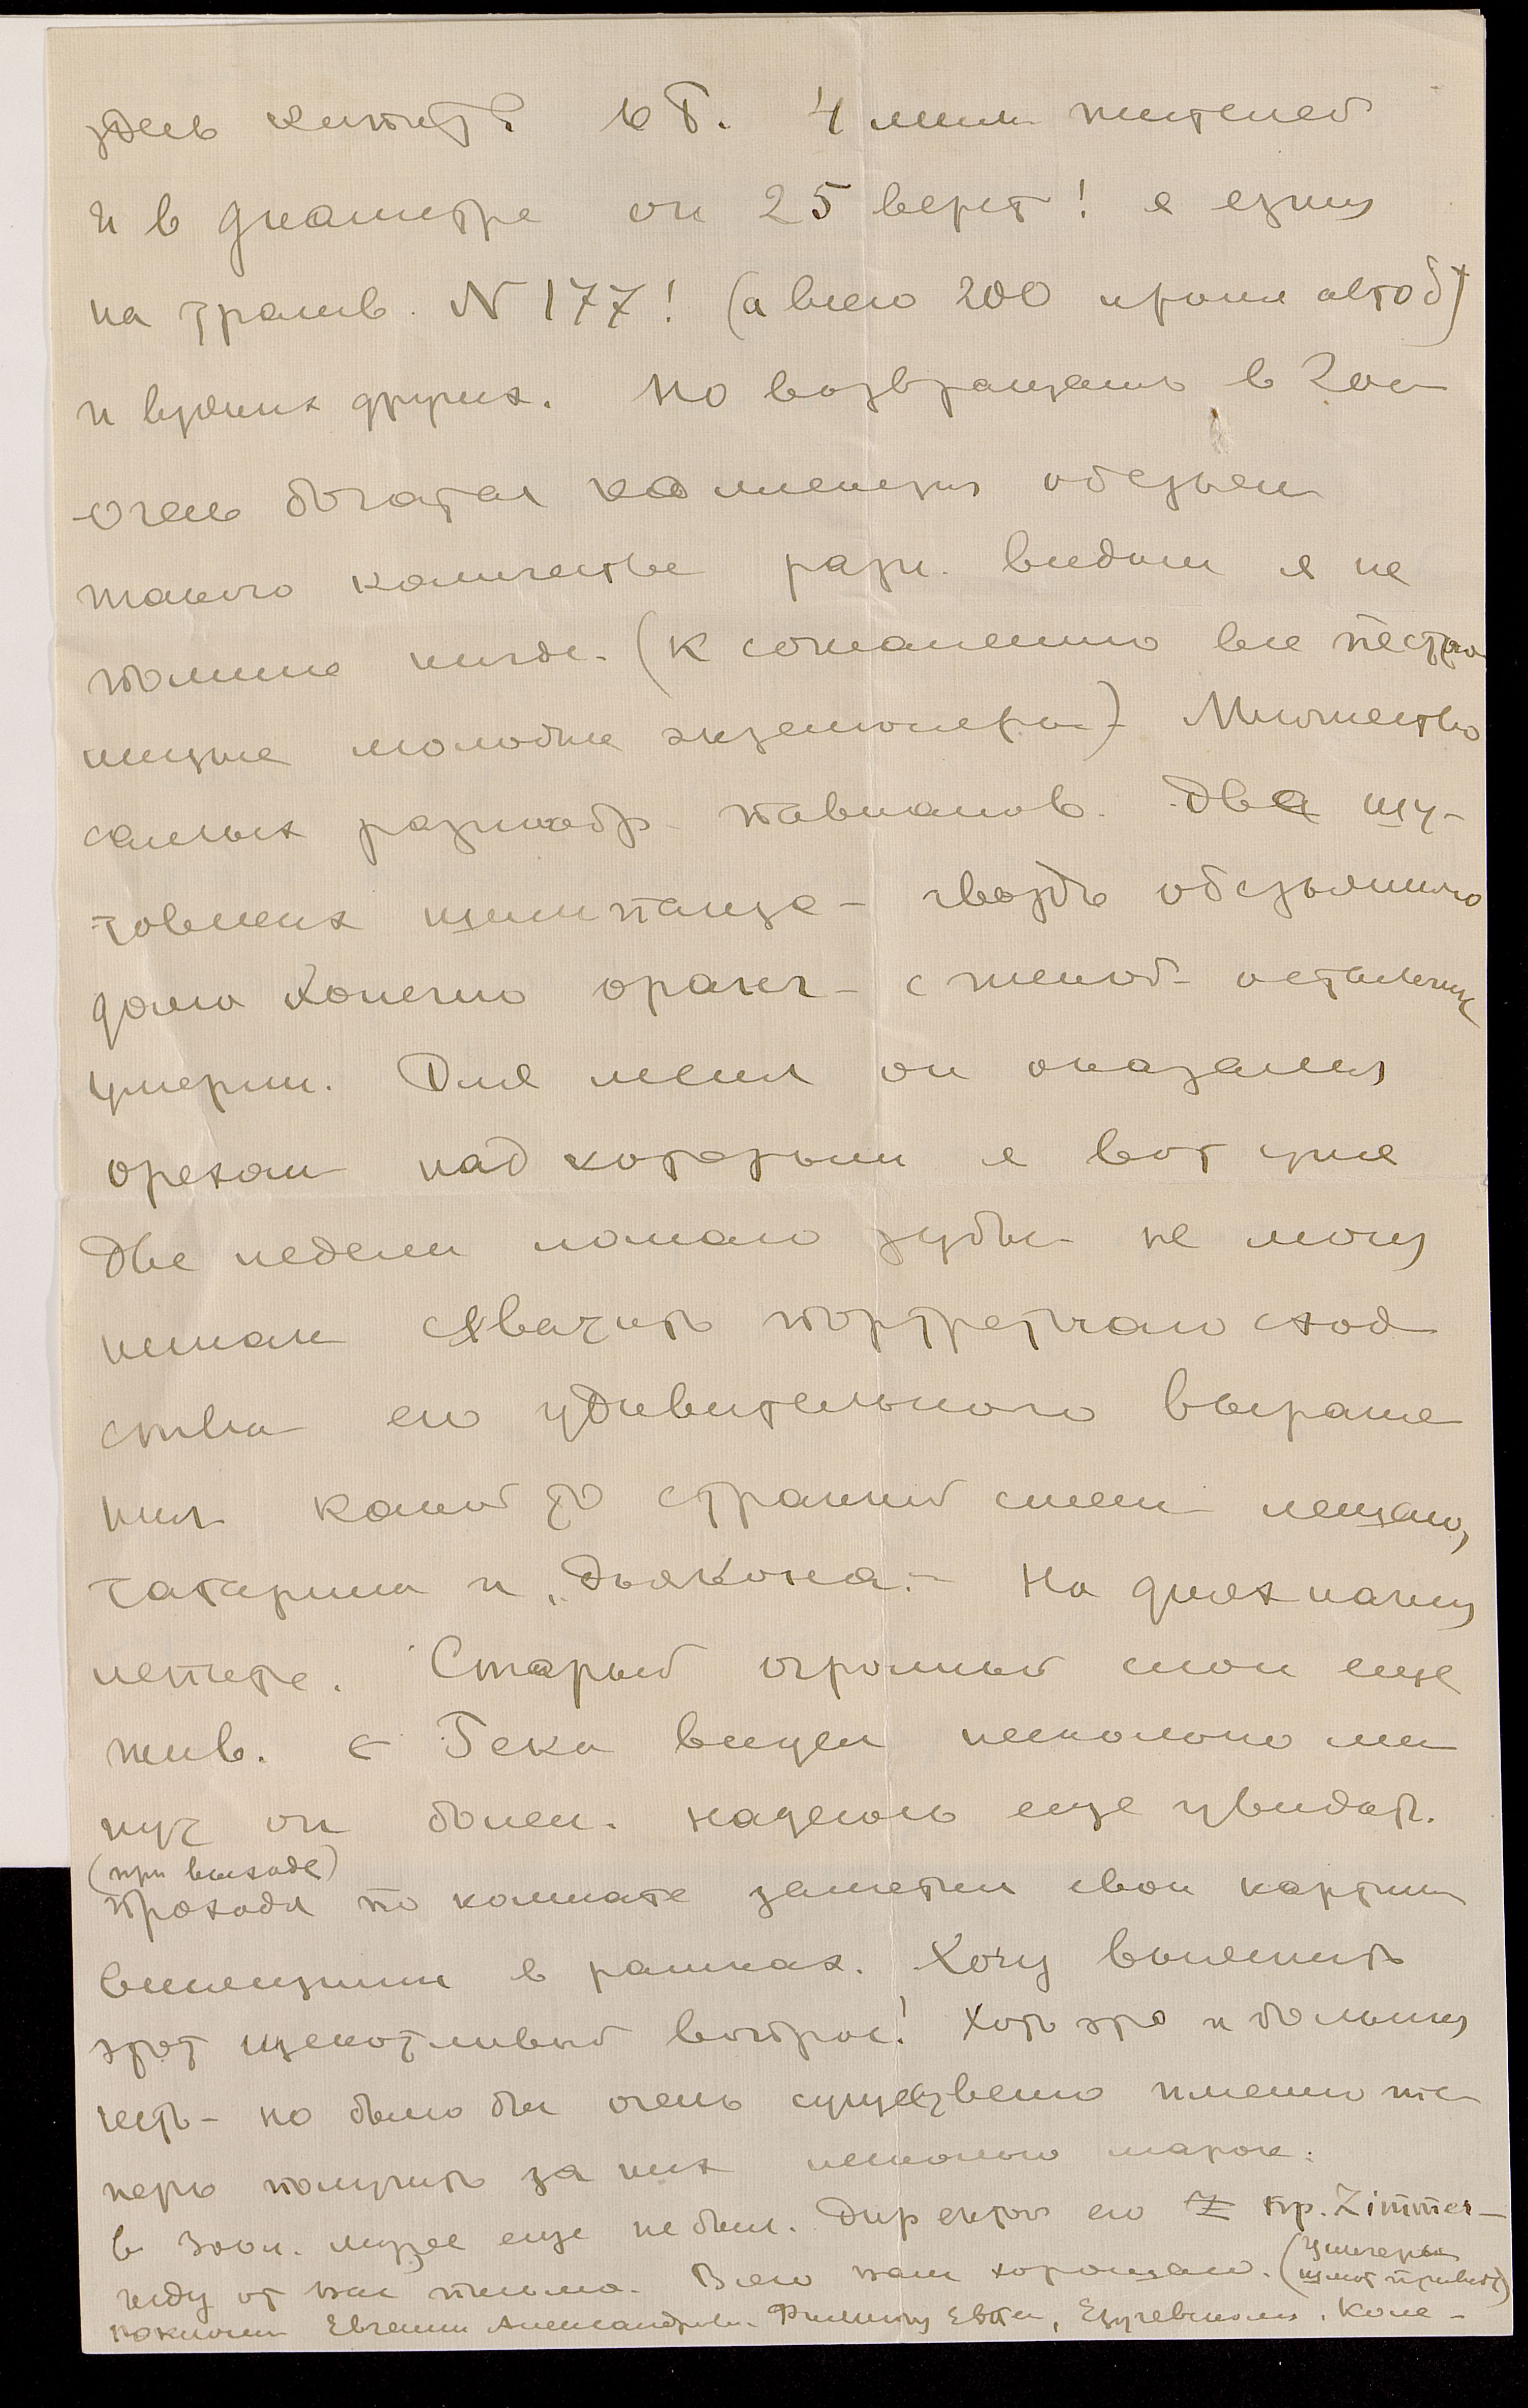 здесь кипит? в Б. 4 милл жителей
и в диаметре он 25 верст! я езжу
на трамв. N 177! (а всего 200 кроме автоб)
и всяких других. Но возвращаюсь в Zoo
очень богатая коллекция обезьян
такого количества разн. видов я не
помню нигде. (к сожалению все
молодые экземпляры) Множество
самых разнообр. павианов. Два шу-
товских шимпанзе – гвоздь обезьяньего
дома конечно оранг – с женой – остальные
умерли. Для меня он оказался
орехом над которым я вот уже
две недели ломаю зубы – не могу
никак схватить портретного сход
ства его удивительного выраже
ния какой то странной смеси
татарина и „дьякона". – На днях начну
лепить. Старый огромный слон еще
жив. с Гека видел несколько ми
нут он болен. надеюсь еще увидать.
(при выходе)
Проходя по комнате заметил свои картины
висящими в рамках. Хочу выяснить
этот щекотливый вопрос! Хоть это и большая
честь – но было бы очень существенно именно те
перь получить за них несколько марок.
в Зоол. музее еще не был. Директор его Z пр. Zimmer –
жду от вас письма. Всего вам хорошего. (
шлют привет)
поклоны Евгении Александровне Филиппу Евт. , . Коле –